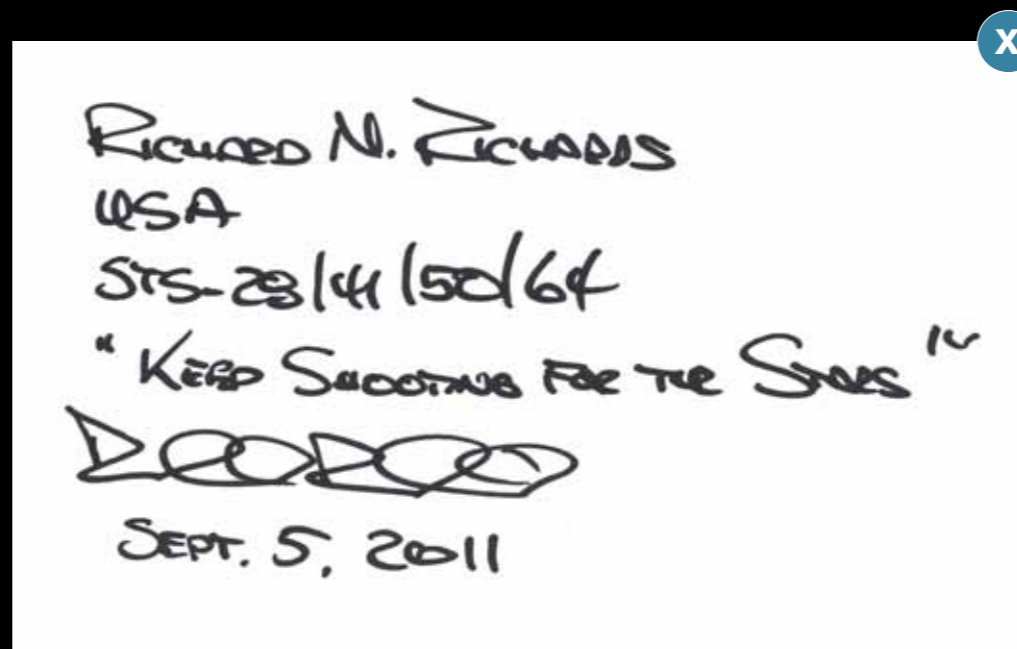 X
RICHARD N. RICHARDS
USA
STS-28/41/50/64
"KEEP SHOOTING FOR THE STARS"
SEPT. 5, 2011